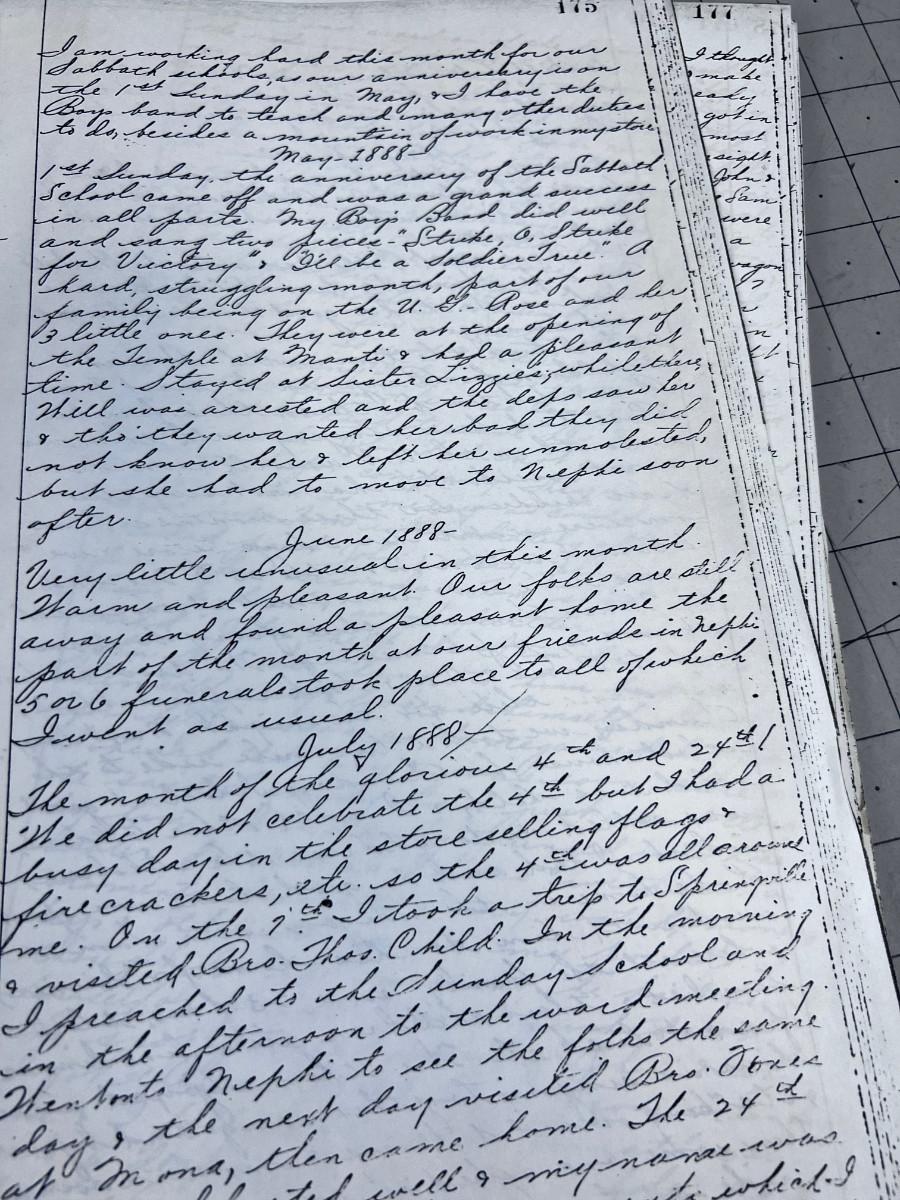 175
I am working hard this month for our
Sabbath schools, as our anniversary is on
the 1st Sunday in May, & I have the
Boys band to teach and many other duties
to do, besides a mountain of work in my store
May-1888-
1st Sunday, the anniversary of the Sabbath
School came off and was a grand success
in all parts. My Boys Band did well
and sang two pieces-"Strike, O, Strike
for Victory" & "I'll be a Soldier True". A
hard, struggling month, part of our
family being on the U. G.- Rose and her
3 little ones. They were at the opening of
the Temple at Manti & had a pleasant
time. Stayed at Sister Lizzies, while there,
Will was arrested and the deps saw her
& tho' they wanted her bad they did
not know her & left her unmolested,
but she had to move to Nephi soon
after.
June 1888-
Very little unusual in this month
Warm and pleasant. Our folks are still
away and found a pleasant home the
part of the month at our friends in Nephi
5 or 6 funerals took place to all of which
I went as usual.
July 1888-
The month of the glorious 4th and 24th!
We did not celebrate the 4th but I had a
busy day in the store selling flags &
fire crackers, etc. so the 4th was all around
me. On the 7th I took a trip to Springville
& visited Bro. Thos. Child. In the morning
I preached to the Sunday School and
in the afternoon to the ward meeting.
Went on to Nephi to see the folks the same
day & the next day visited Bro. Jones
at Mona, then came home. The 24th
well & my name was
which I
177
I thought
make
eady
got in
most
sight.
John &
Sam
were
a
wagon